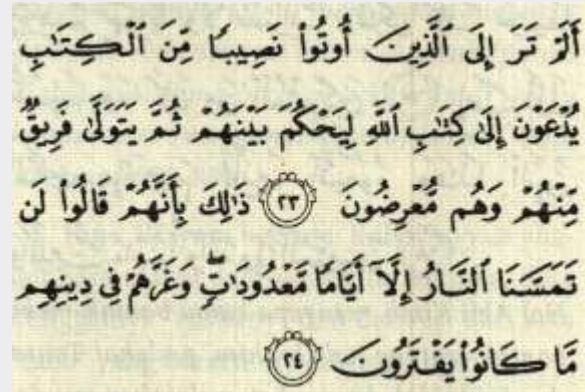 أَلَمْ تَرَ إِلَى ٱلَّذِينَ أُوتُوا۟ نَصِيبًا مِّنَ ٱلْكِتَٰبِ
يُدْعَوْنَ إِلَىٰ كِتَٰبِ ٱللَّهِ لِيَحْكُمَ بَيْنَهُمْ ثُمَّ يَتَوَلَّىٰ فَرِيقٌ
مِّنْهُمْ وَهُم مُّعْرِضُونَ ٢٣ ذَٰلِكَ بِأَنَّهُمْ قَالُوا۟ لَن
تَمَسَّنَا ٱلنَّارُ إِلَّآ أَيَّامًا مَّعْدُودَٰتٍۖ وَغَرَّهُمْ فِى دِينِهِم
مَّا كَانُوا۟ يَفْتَرُونَ ٢٤